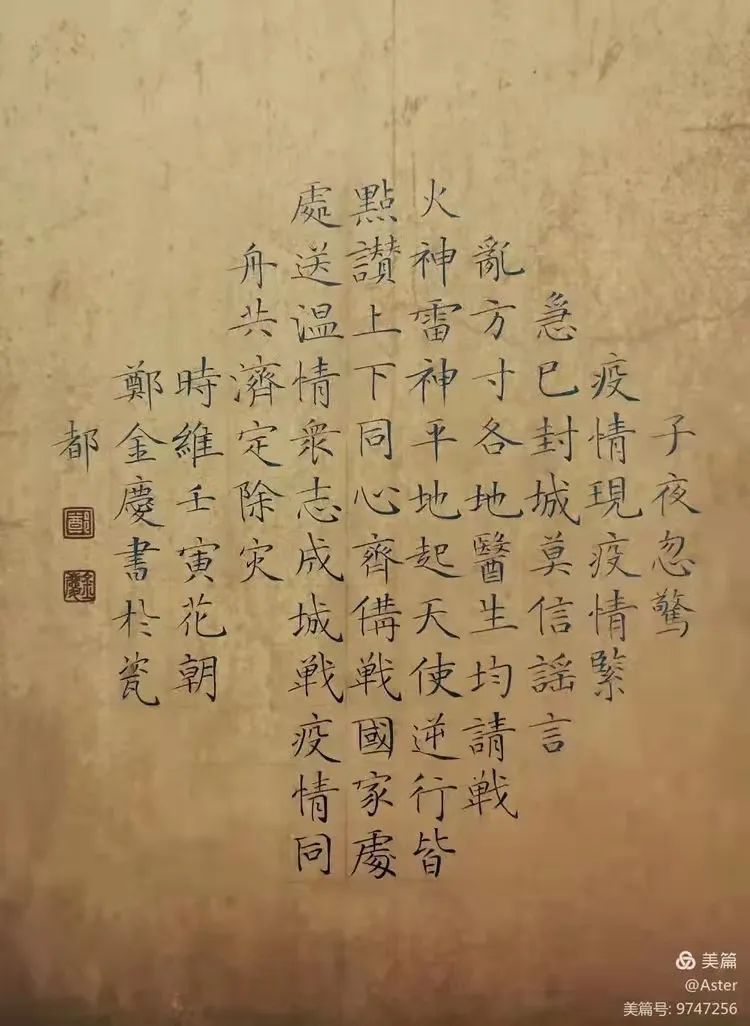 子夜忽驚
疫情現疫情緊
急已封城莫信謡言
亂方寸各地醫生均請戦
火神雷神平地起天使逆行皆
點讃上下同心齊備戦國家處
處送温情衆志成城戦疫情同
舟共濟定除灾
時維壬寅花朝
鄭金慶書於瓷
都
美篇
@Aster
美篇号: 9747256